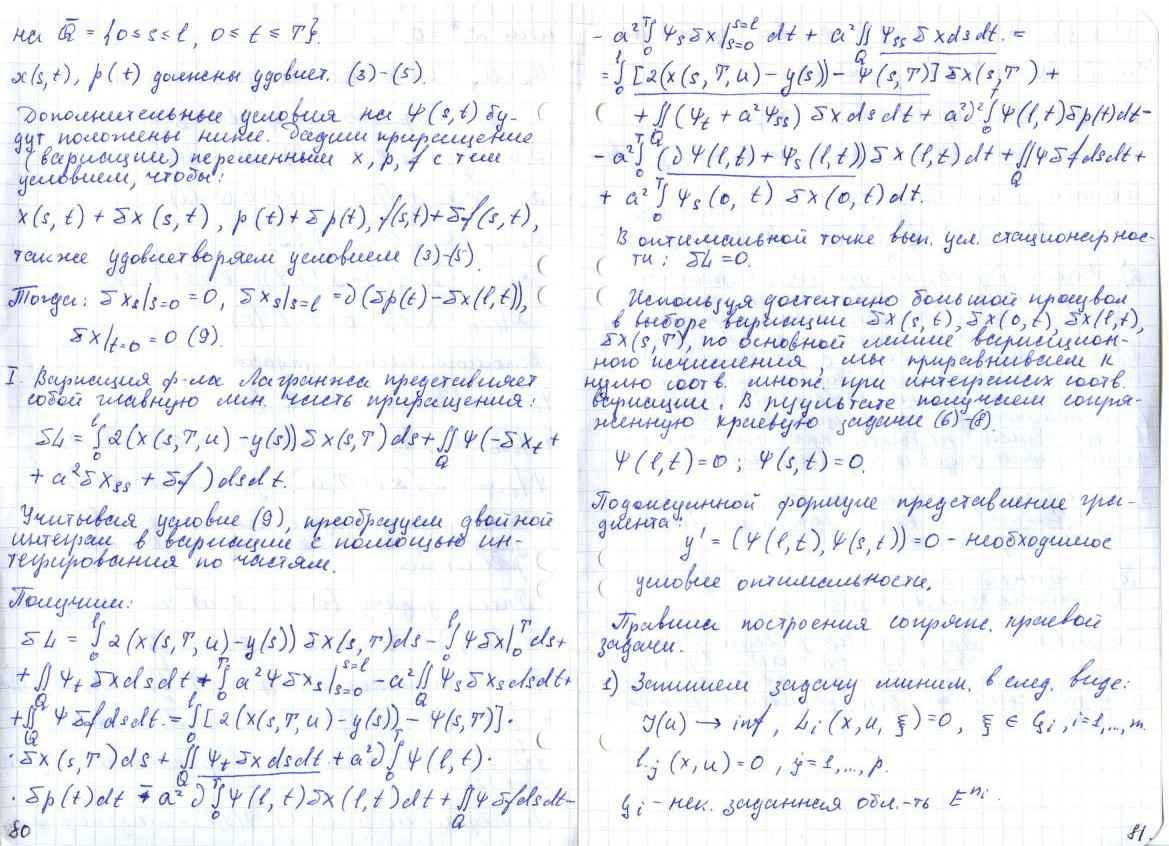 на Q̄ = {0≤s≤l, 0≤t≤T}.
x(s,t), p(t) должны удовлет. (3)-(5).
Дополнительные условия на Ψ(s,t) бу-
дут положены ниже. Дадим приращение
(вариации) переменным x, p, f с тем
условием, чтобы:
x(s,t) + δx(s,t), p(t)+δp(t), f(s,t)+δf(s,t),
также удовлетворяем условием (3)-(5).
Тогда: δx_s|_{s=0} = 0, δx_s|_{s=l} = ν(δp(t) - δx(l,t)),
δx|_{t=0} = 0 (9).
I. Вариация ф-ла Лагранжа представляет
собой главную лин. часть приращения:
δL = ∫_0^l 2(x(s,T,u) - y(s)) δx(s,T) ds + ∬_Q Ψ(-δx_t +
+ a²δx_ss + δf) ds dt.
Учитывая условие (9), преобразуем двойной
интеграл в вариации с помощью ин-
тегрирования по частям.
Получим:
δL = ∫_0^l 2(x(s,T,u) - y(s)) δx(s,T) ds - ∫_0^l Ψδx|_0^T ds +
+ ∬_Q Ψ_t δx ds dt + ∫_0^T a²Ψδx_s|_{s=0}^{s=l} - a² ∬_Q Ψ_s δx_s ds dt +
+ ∬_Q Ψ δf ds dt. = ∫_0^l [2(x(s,T,u) - y(s)) - Ψ(s,T)] ·
· δx(s,T) ds + ∬_Q Ψ_t δx ds dt + a²ν ∫_0^T Ψ(l,t) ·
· δp(t) dt - a²ν ∫_0^T Ψ(l,t) δx(l,t) dt + ∬_Q Ψ δf ds dt -
80
- a² ∫_0^T Ψ_s δx|_{s=0}^{s=l} dt + a² ∬_Q Ψ_ss δx ds dt. =
= ∫_0^l [2(x(s,T,u) - y(s)) - Ψ(s,T)] δx(s,T) +
+ ∬_Q (Ψ_t + a²Ψ_ss) δx ds dt + a²ν ∫_0^T Ψ(l,t) δp(t) dt -
- a² ∫_0^T (νΨ(l,t) + Ψ_s(l,t)) δx(l,t) dt + ∬_Q Ψ δf ds dt +
+ a² ∫_0^T Ψ_s(0,t) δx(0,t) dt.
В оптимальной точке вып. усл. стационарнос-
ти: δL = 0.
Используя достаточно большой произвол
в выборе вариации δx(s,t), δx(0,t), δx(l,t),
δx(s,T), по основной лемме вариацион-
ного исчисления, мы приравниваем к
нулю соотв. множ. при интегралах соотв.
вариации. В результате получаем сопря-
женную краевую задачи (6)-(8).
Ψ(l,t) = 0; Ψ(s,t) = 0.
Подынсуинной формуле представление гра-
диента:
y' = (Ψ(l,t), Ψ(s,t)) = 0 - необходимое
условие оптимальности.
Правила построения сопряж. краевой
задачи.
1) Запишем задачу миним. в след. виде:
J(u) → inf, L_i(x,u,ξ) = 0, ξ ∈ G_i, i=1,...,m.
l_j(x,u) = 0, j=1,...,p.
G_i - нек. заданная обл.-ть E^{n_i}.
81.